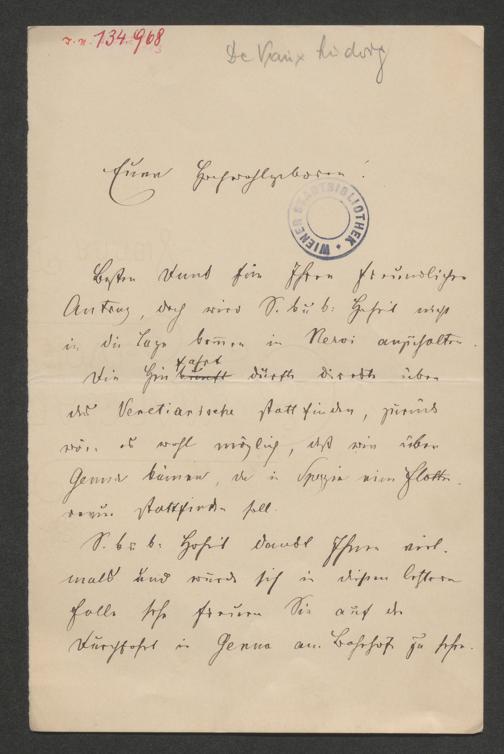 I.N. 134.968
De Vaux Ludwig
Euer Hochwohlgeboren!
WIENER STADTBIBLIOTHEK
Besten Dank für Ihren freundlichen
Antrag, doch wird S. k u k: Hoheit nicht
in die Lage kommen in Nervi anzuhalten.
fahrt
Die Hinkunft dürfte directe über
das Venetianische stattfinden, zurück
wäre es wohl möglich, daß wir über
Genua kämen, da in Spezia eine Flotten-
revue stattfinden soll.
S. k u k: Hoheit dankt Ihnen viel-
mals und würde sich in diesem letzteren
Falle sehr freuen Sie auf der
Durchfahrt in Genua am Bahnhofe zu sehen.